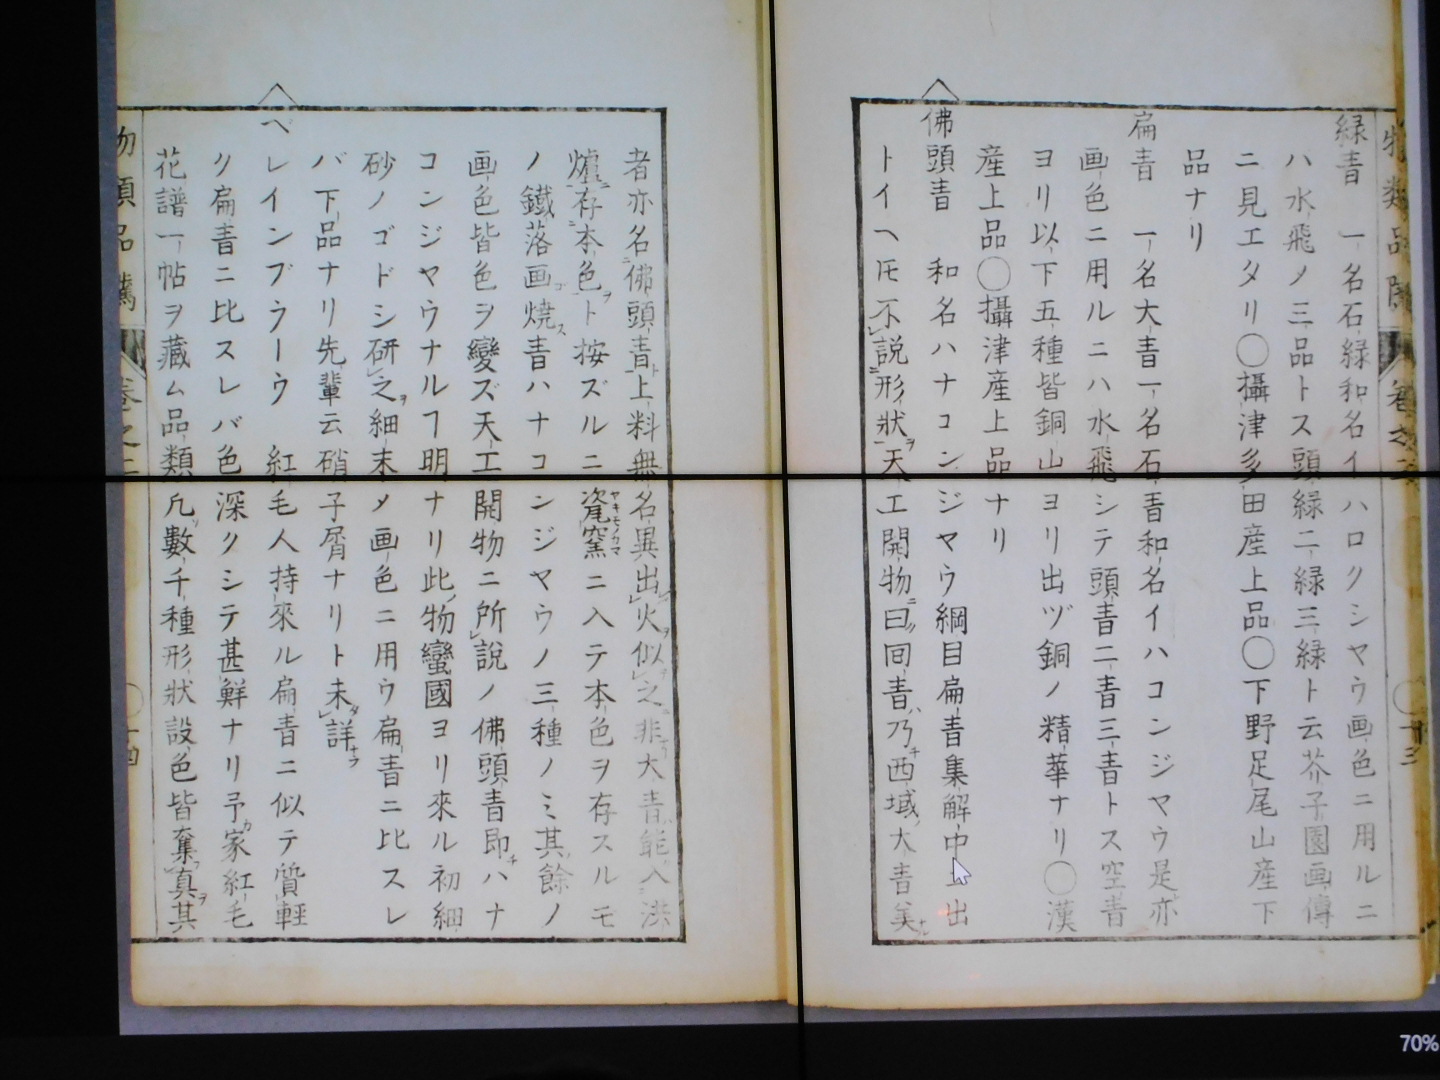 緑青 一名石緑和名イハロクシヤウ画色ニ用ルニ
ハ水飛ノ三品トス頭緑二緑三緑ト云芥子園画傳
ニ見エタリ〇攝津多田産上品〇下野足尾山産下
品ナリ
扁青 一名大青一名石青和名イハコンジヤウ是亦
画色ニ用ルニハ水飛シテ頭青二青三青トス空青
ヨリ以下五種皆銅山ヨリ出ヅ銅ノ精華ナリ〇漢
産上品〇攝津産上品ナリ
佛頭青 和名ハナコンジヤウ綱目扁青集解中ニ出
トイヘ𪜈不説形狀天工開物曰回青乃西域大青美
者亦名佛頭青上料無名異出火似之非大青能入洪
爐存本色ト按ズルニ瓷窯ニ入テ本色ヲ存スルモ
ノ鐵落画焼青ハナコンジヤウノ三種ノミ其餘ノ
画色皆色ヲ變ズ天工開物ニ所説ノ佛頭青即ハナ
コンジヤウナルヿ明ナリ此物蠻國ヨリ來ル初細
砂ノゴドシ研之細末メ画色ニ用ウ扁青ニ比スレ
バ下品ナリ先輩云硝子屑ナリト未詳
ベレインブラーウ 紅毛人持來ル扁青ニ似テ質輕
ク扁青ニ比スレバ色深クシテ甚鮮ナリ予家紅毛
花譜一帖ヲ藏ム品類凢數千種形狀設色皆奪真其
物類品隲 卷之二
十三
十四
70%